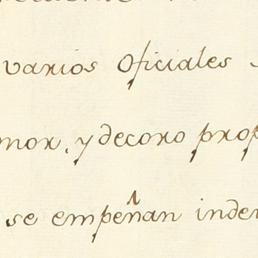 varios Oficiales
mor, y decoro prop
se empeñan inde